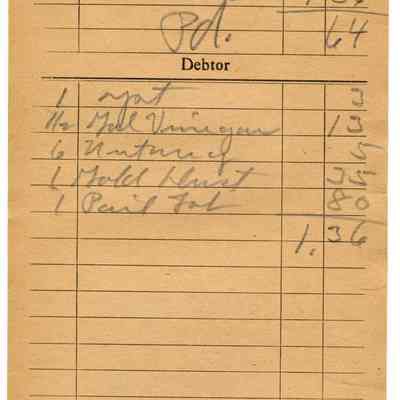 Pd. 64
Debtor
1 3
1/2 Gal Vinegar 13
6 Nutmeg 5
1 Gold Dust 35
1 Pail 80
1.36